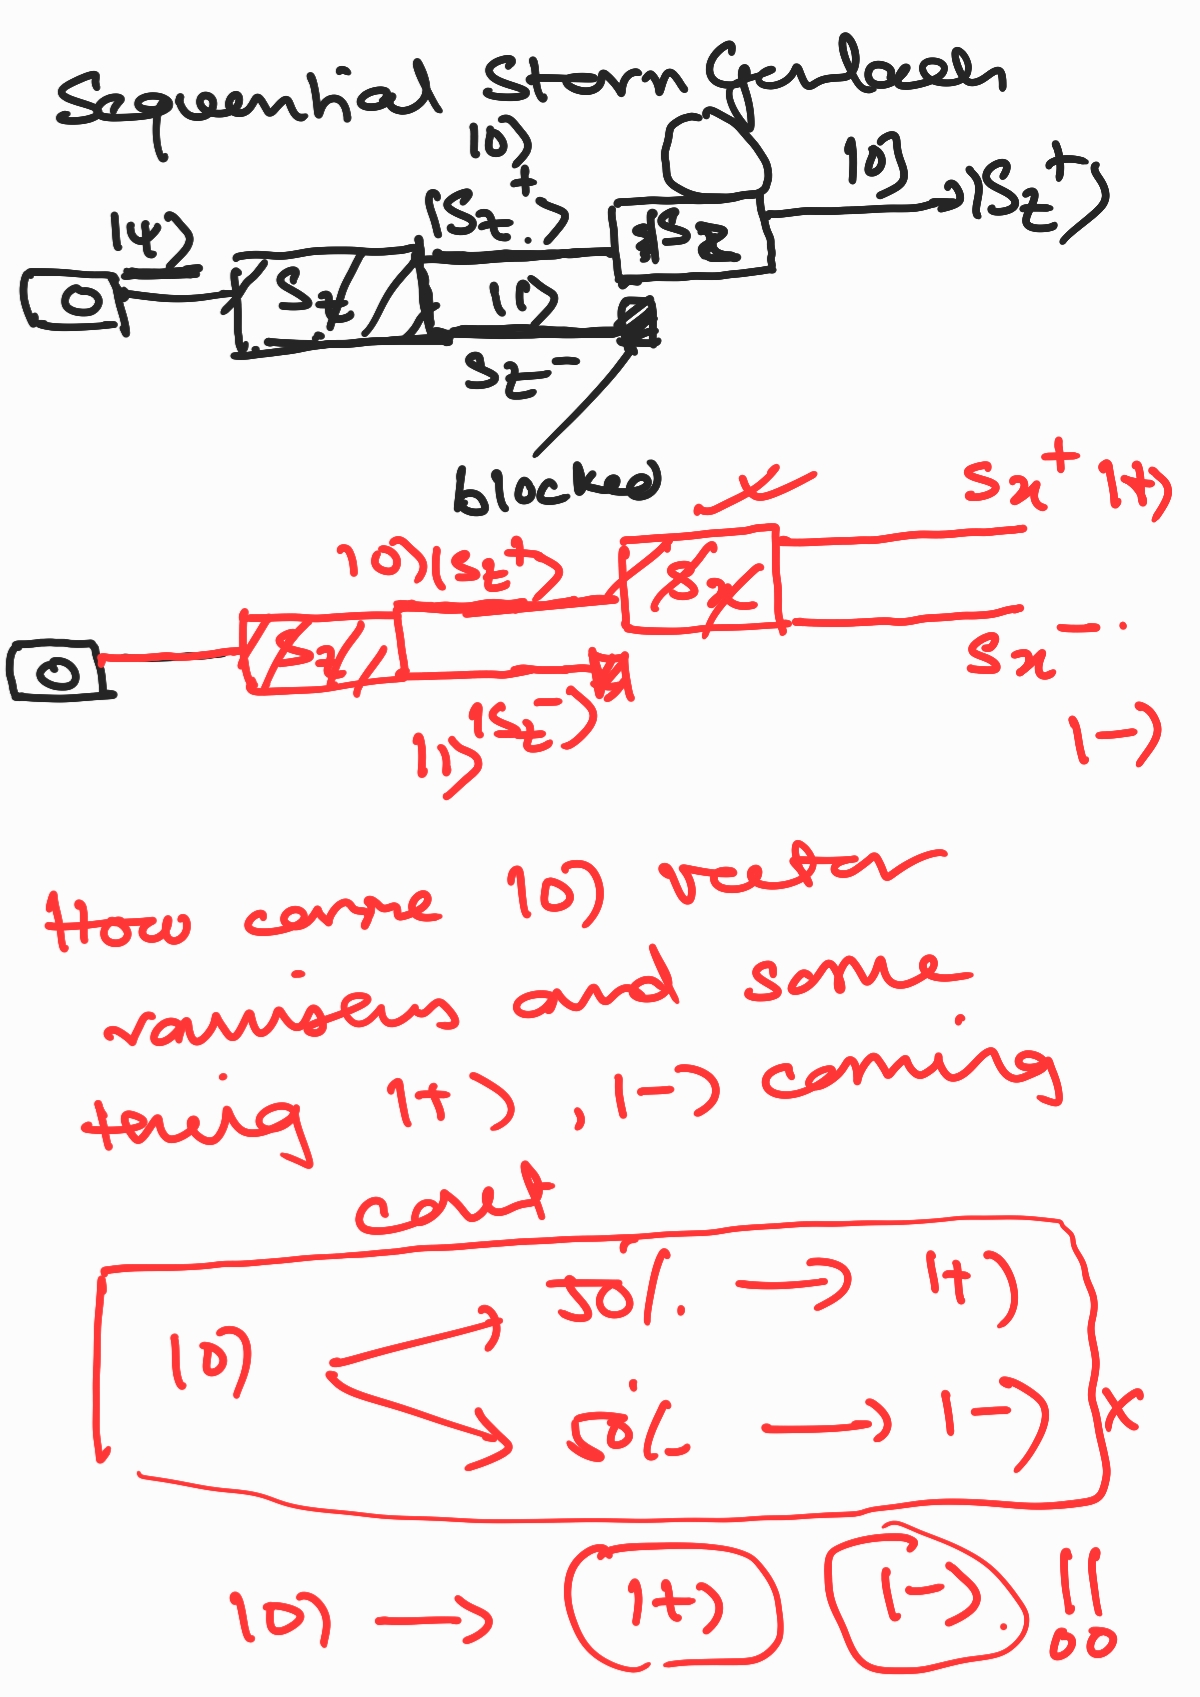 Sequential Stern Gerlach
|0⟩
|ψ⟩ |Sz+⟩ |0⟩ |Sz+⟩
Sz Sz
|1⟩
Sz−
blocked
Sx+ |+⟩
|0⟩ |Sz+⟩ Sx
Sz
Sx−
|1⟩ |Sz−⟩ |−⟩
How come |0⟩ vector
vanishes and some
thing |+⟩, |−⟩ coming
out
50% → |+⟩
|0⟩
50% → |−⟩ x
|0⟩ → |+⟩ |−⟩ !!